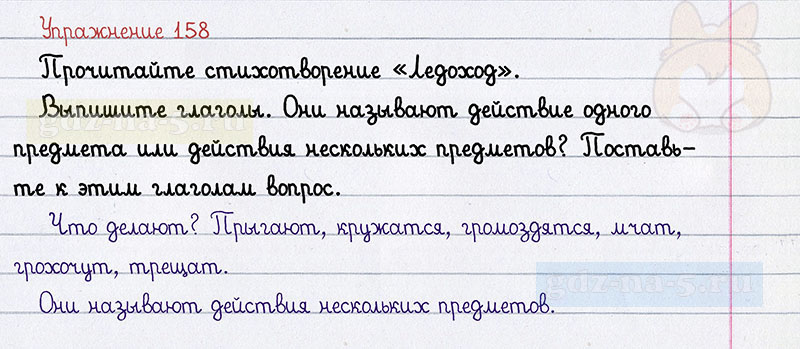 Упражнение 158
Прочитайте стихотворение «Ледоход».
Выпишите глаголы. Они называют действие одного
предмета или действия нескольких предметов? Поставь-
те к этим глаголам вопрос.
Что делают? Прыгают, кружатся, громоздятся, мчат,
грохочут, трещат.
Они называют действия нескольких предметов.
gdz-na-5.ru
gdz-na-5.ru